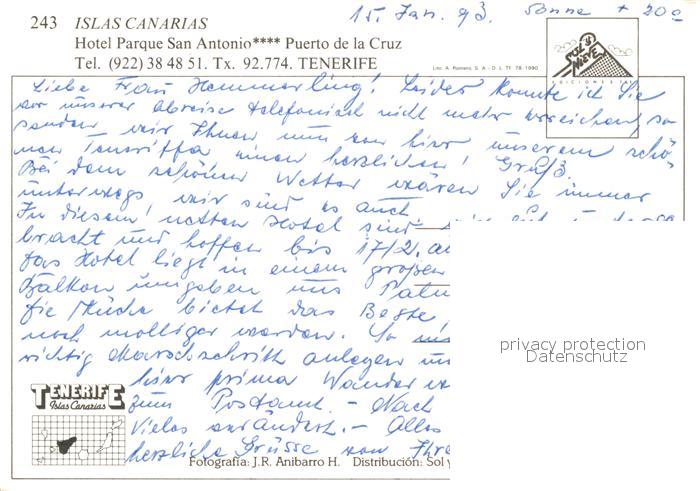 15. Jan. 93. Sonne + 20°
243 ISLAS CANARIAS
Hotel Parque San Antonio**** Puerto de la Cruz
Tel. (922) 38 48 51. Tx. 92.774. TENERIFE
Lito. A. Romero, S. A. - D. L. TF. 78-1990
SOL Y NIEVE
EDICIONES
Liebe Frau Hemmerling! Leider konnte ich Sie
vor unserer Abreise telefonisch nicht mehr erreichen, so
senden wir Ihnen nun von hier unserem schö-
nen Teneriffa einen herzlichen Gruß.
Bei dem schönen Wetter wären Sie immer
unterwegs wir sind es auch.
In diesem netten Hotel sind
bracht und hoffen bis 17/2.
Das Hotel liegt in einem großen
Balkon umgeben uns
Die Küche bietet das Beste
noch molliger werden. So
richtig Marschschritt anlegen
hier prima Wander
zum Postamt. - Nach
Vieles verändert. - Alles
herzliche Grüsse von Ihre
privacy protection
Datenschutz
TENERIFE
Islas Canarias
Fotografía: J.R. Anibarro H. Distribución: Sol y